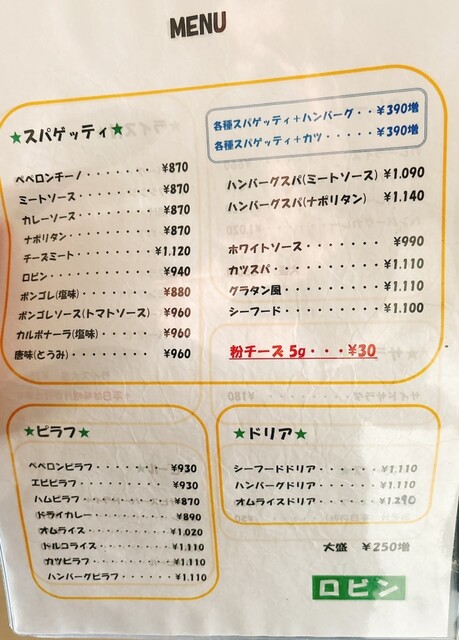 MENU
★スパゲッティ★
各種スパゲッティ+ハンバーグ・・¥390増
各種スパゲッティ+カツ・・・・・¥390増
ペペロンチーノ・・・・・・・¥870
ミートソース・・・・・・・・¥870
カレーソース・・・・・・・・¥870
ナポリタン・・・・・・・・・¥870
チーズミート・・・・・・・・¥1.120
ロビン・・・・・・・・・・・¥940
ボンゴレ(塩味)・・・・・・・¥880
ボンゴレソース(トマトソース)・¥960
カルボナーラ(塩味)・・・・・¥960
唐味(とうみ)・・・・・・・・¥960
ハンバーグスパ(ミートソース) ¥1.090
ハンバーグスパ(ナポリタン) ¥1.140
ホワイトソース・・・・・・・¥990
カツスパ・・・・・・・・・・¥1.110
グラタン風・・・・・・・・・¥1.110
シーフード・・・・・・・・・¥1.100
粉チーズ 5g・・・¥30
★ピラフ★
ペペロンピラフ・・・・・・・¥930
エビピラフ・・・・・・・・・¥930
ハムピラフ・・・・・・・・・¥870
ドライカレー・・・・・・・・¥890
オムライス・・・・・・・・・¥1.020
トルコライス・・・・・・・・¥1.110
カツピラフ・・・・・・・・・¥1.110
ハンバーグピラフ・・・・・・¥1.110
★ドリア★
シーフードドリア・・・・・・¥1.110
ハンバーグドリア・・・・・・¥1.110
オムライスドリア・・・・・・¥1.290
大盛 ¥250増
ロビン